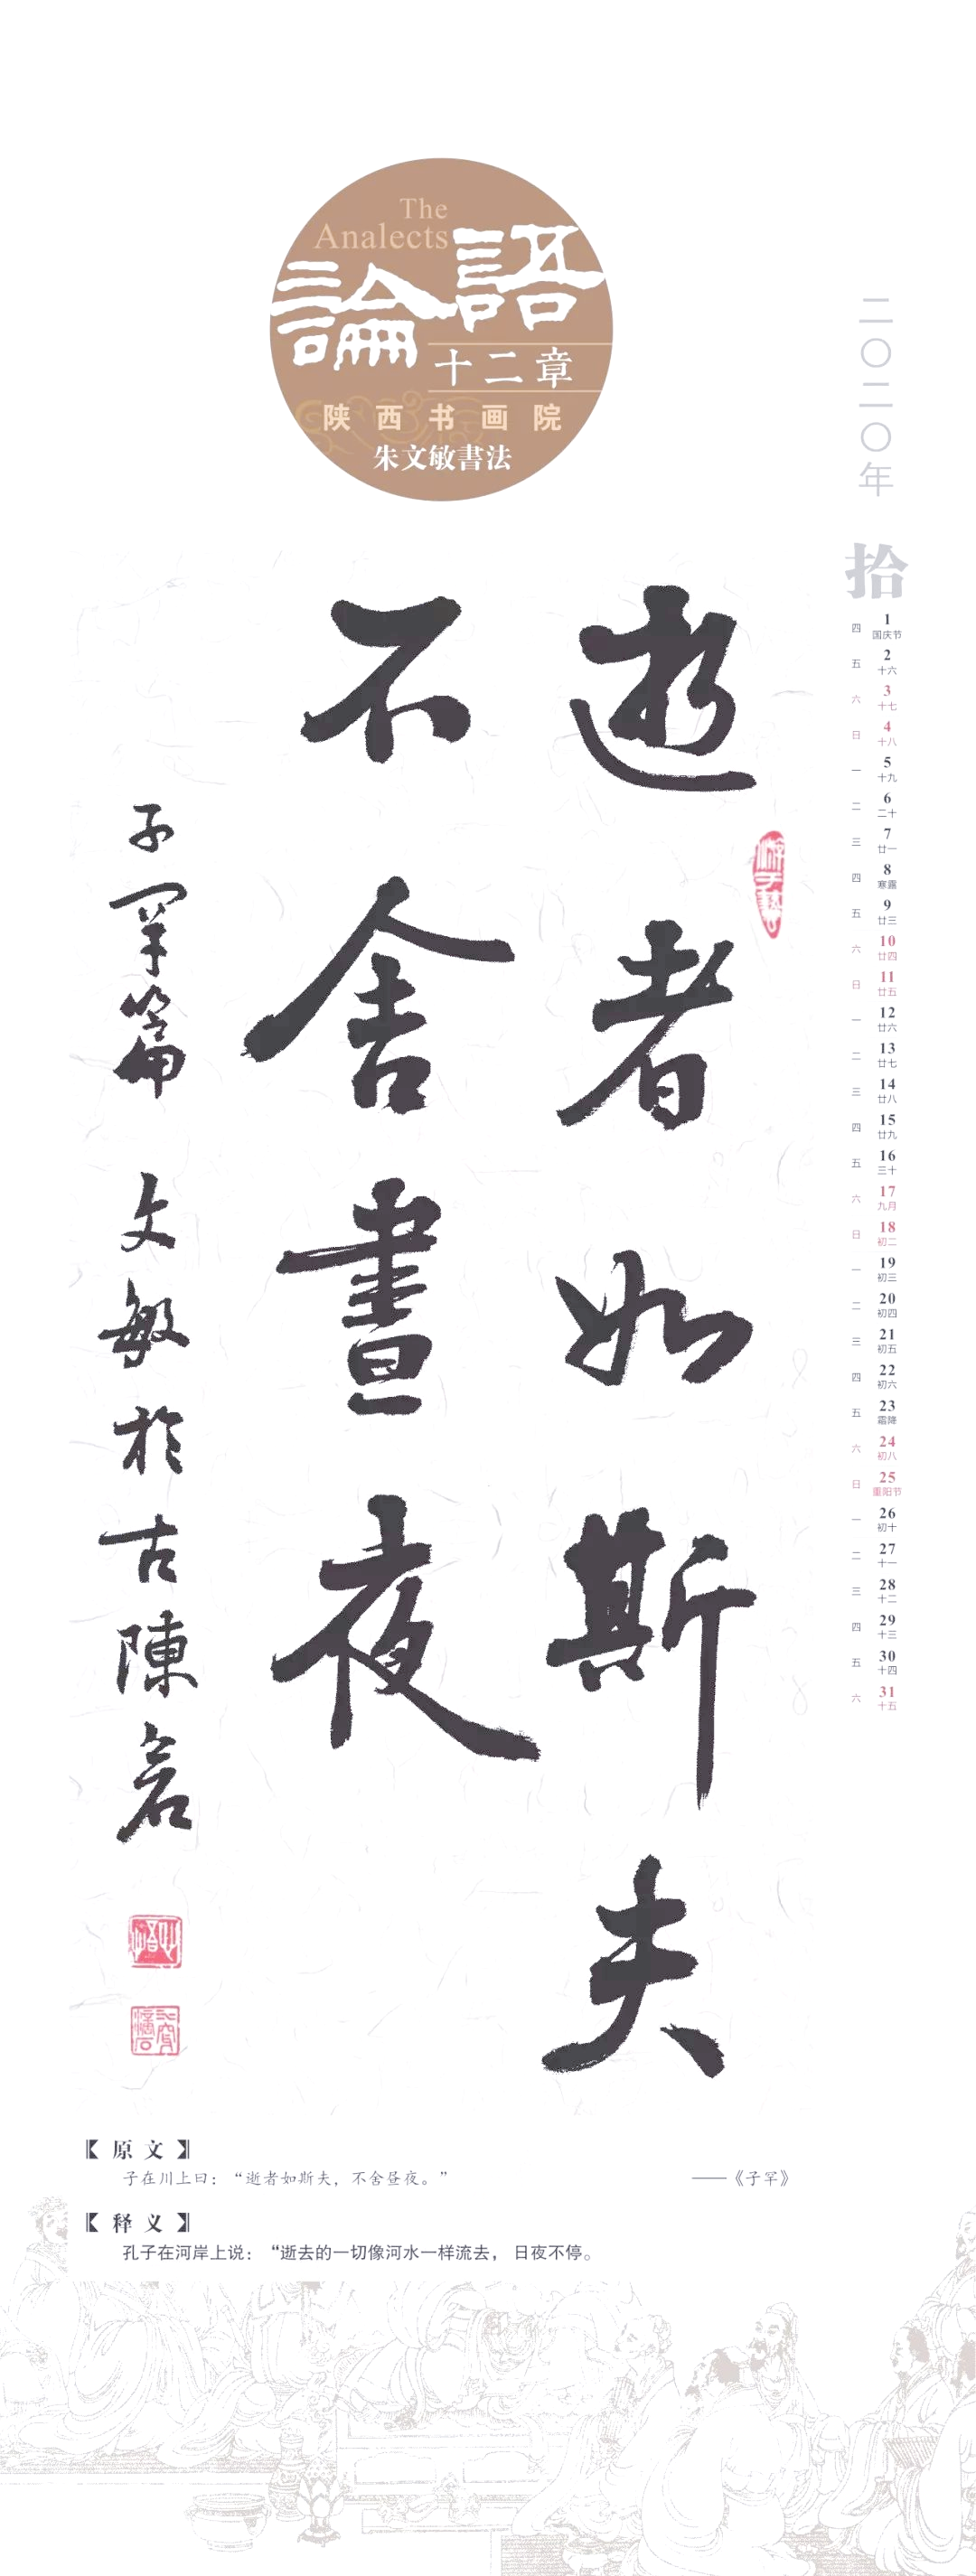 The
Analects
論語
十二章
陕西书画院
朱文敏書法
二〇二〇年
拾
四 1 国庆节
五 2 十六
六 3 十七
日 4 十八
一 5 十九
二 6 二十
三 7 廿一
四 8 寒露
五 9 廿三
六 10 廿四
日 11 廿五
一 12 廿六
二 13 廿七
三 14 廿八
四 15 廿九
五 16 三十
六 17 九月
日 18 初二
一 19 初三
二 20 初四
三 21 初五
四 22 初六
五 23 霜降
六 24 初八
日 25 重阳节
一 26 初十
二 27 十一
三 28 十二
四 29 十三
五 30 十四
六 31 十五
逝者如斯夫
不舍晝夜
子罕篇 文敏於古陳倉
游于藝
【原文】
子在川上曰：“逝者如斯夫，不舍昼夜。” ——《子罕》
【释义】
孔子在河岸上说：“逝去的一切像河水一样流去，日夜不停。